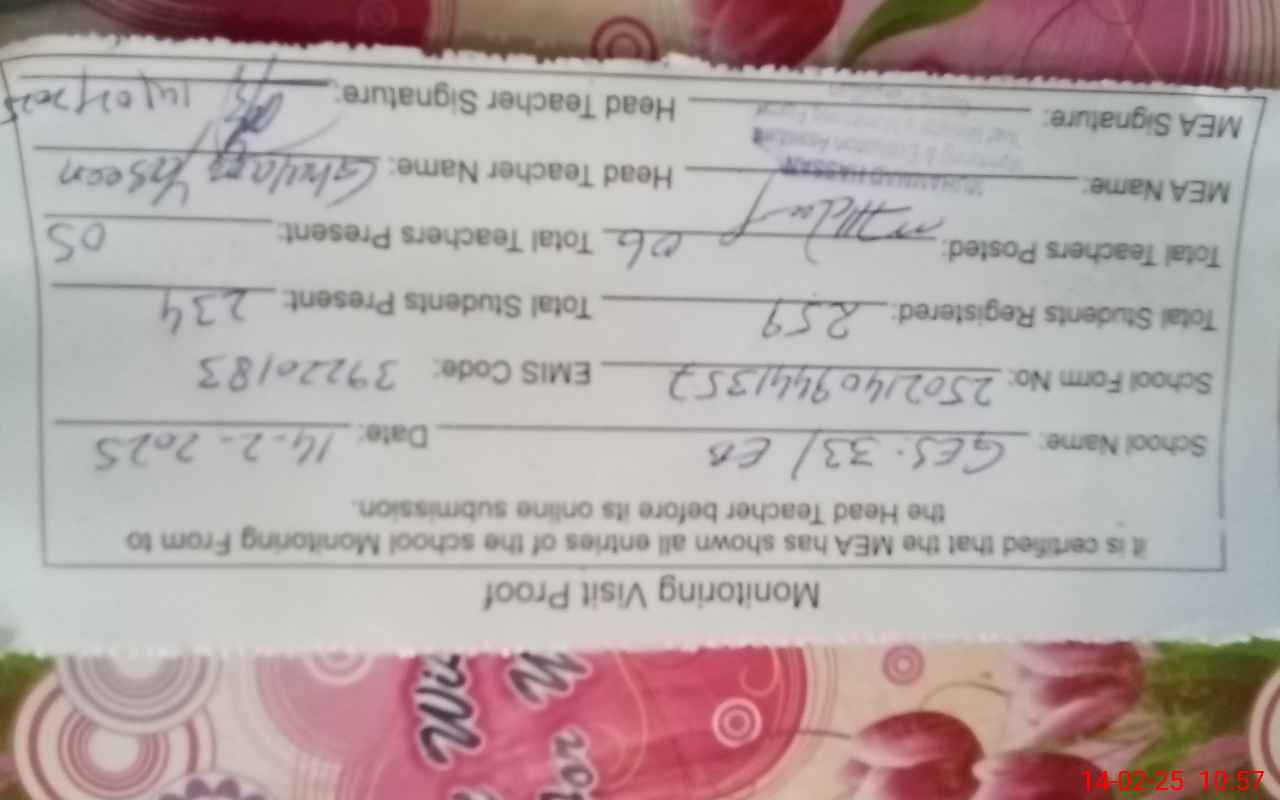 Monitoring Visit Proof
it is certified that the MEA has shown all entries of the school Monitoring From to
the Head Teacher before its online submission.
School Name: GES. 33/EB Date: 14-2-2025
School Form No: 25021409441357 EMIS Code: 39220183
Total Students Registered: 259 Total Students Present: 234
Total Teachers Posted: 06 Total Teachers Present: 05
MEA Name: MUHAMMAD HASSAN Head Teacher Name: Ghulam Yaseen
Monitoring & Evaluation Assistant
MEA Signature: Head Teacher Signature: 14/02/2025
14-02-25 10:57